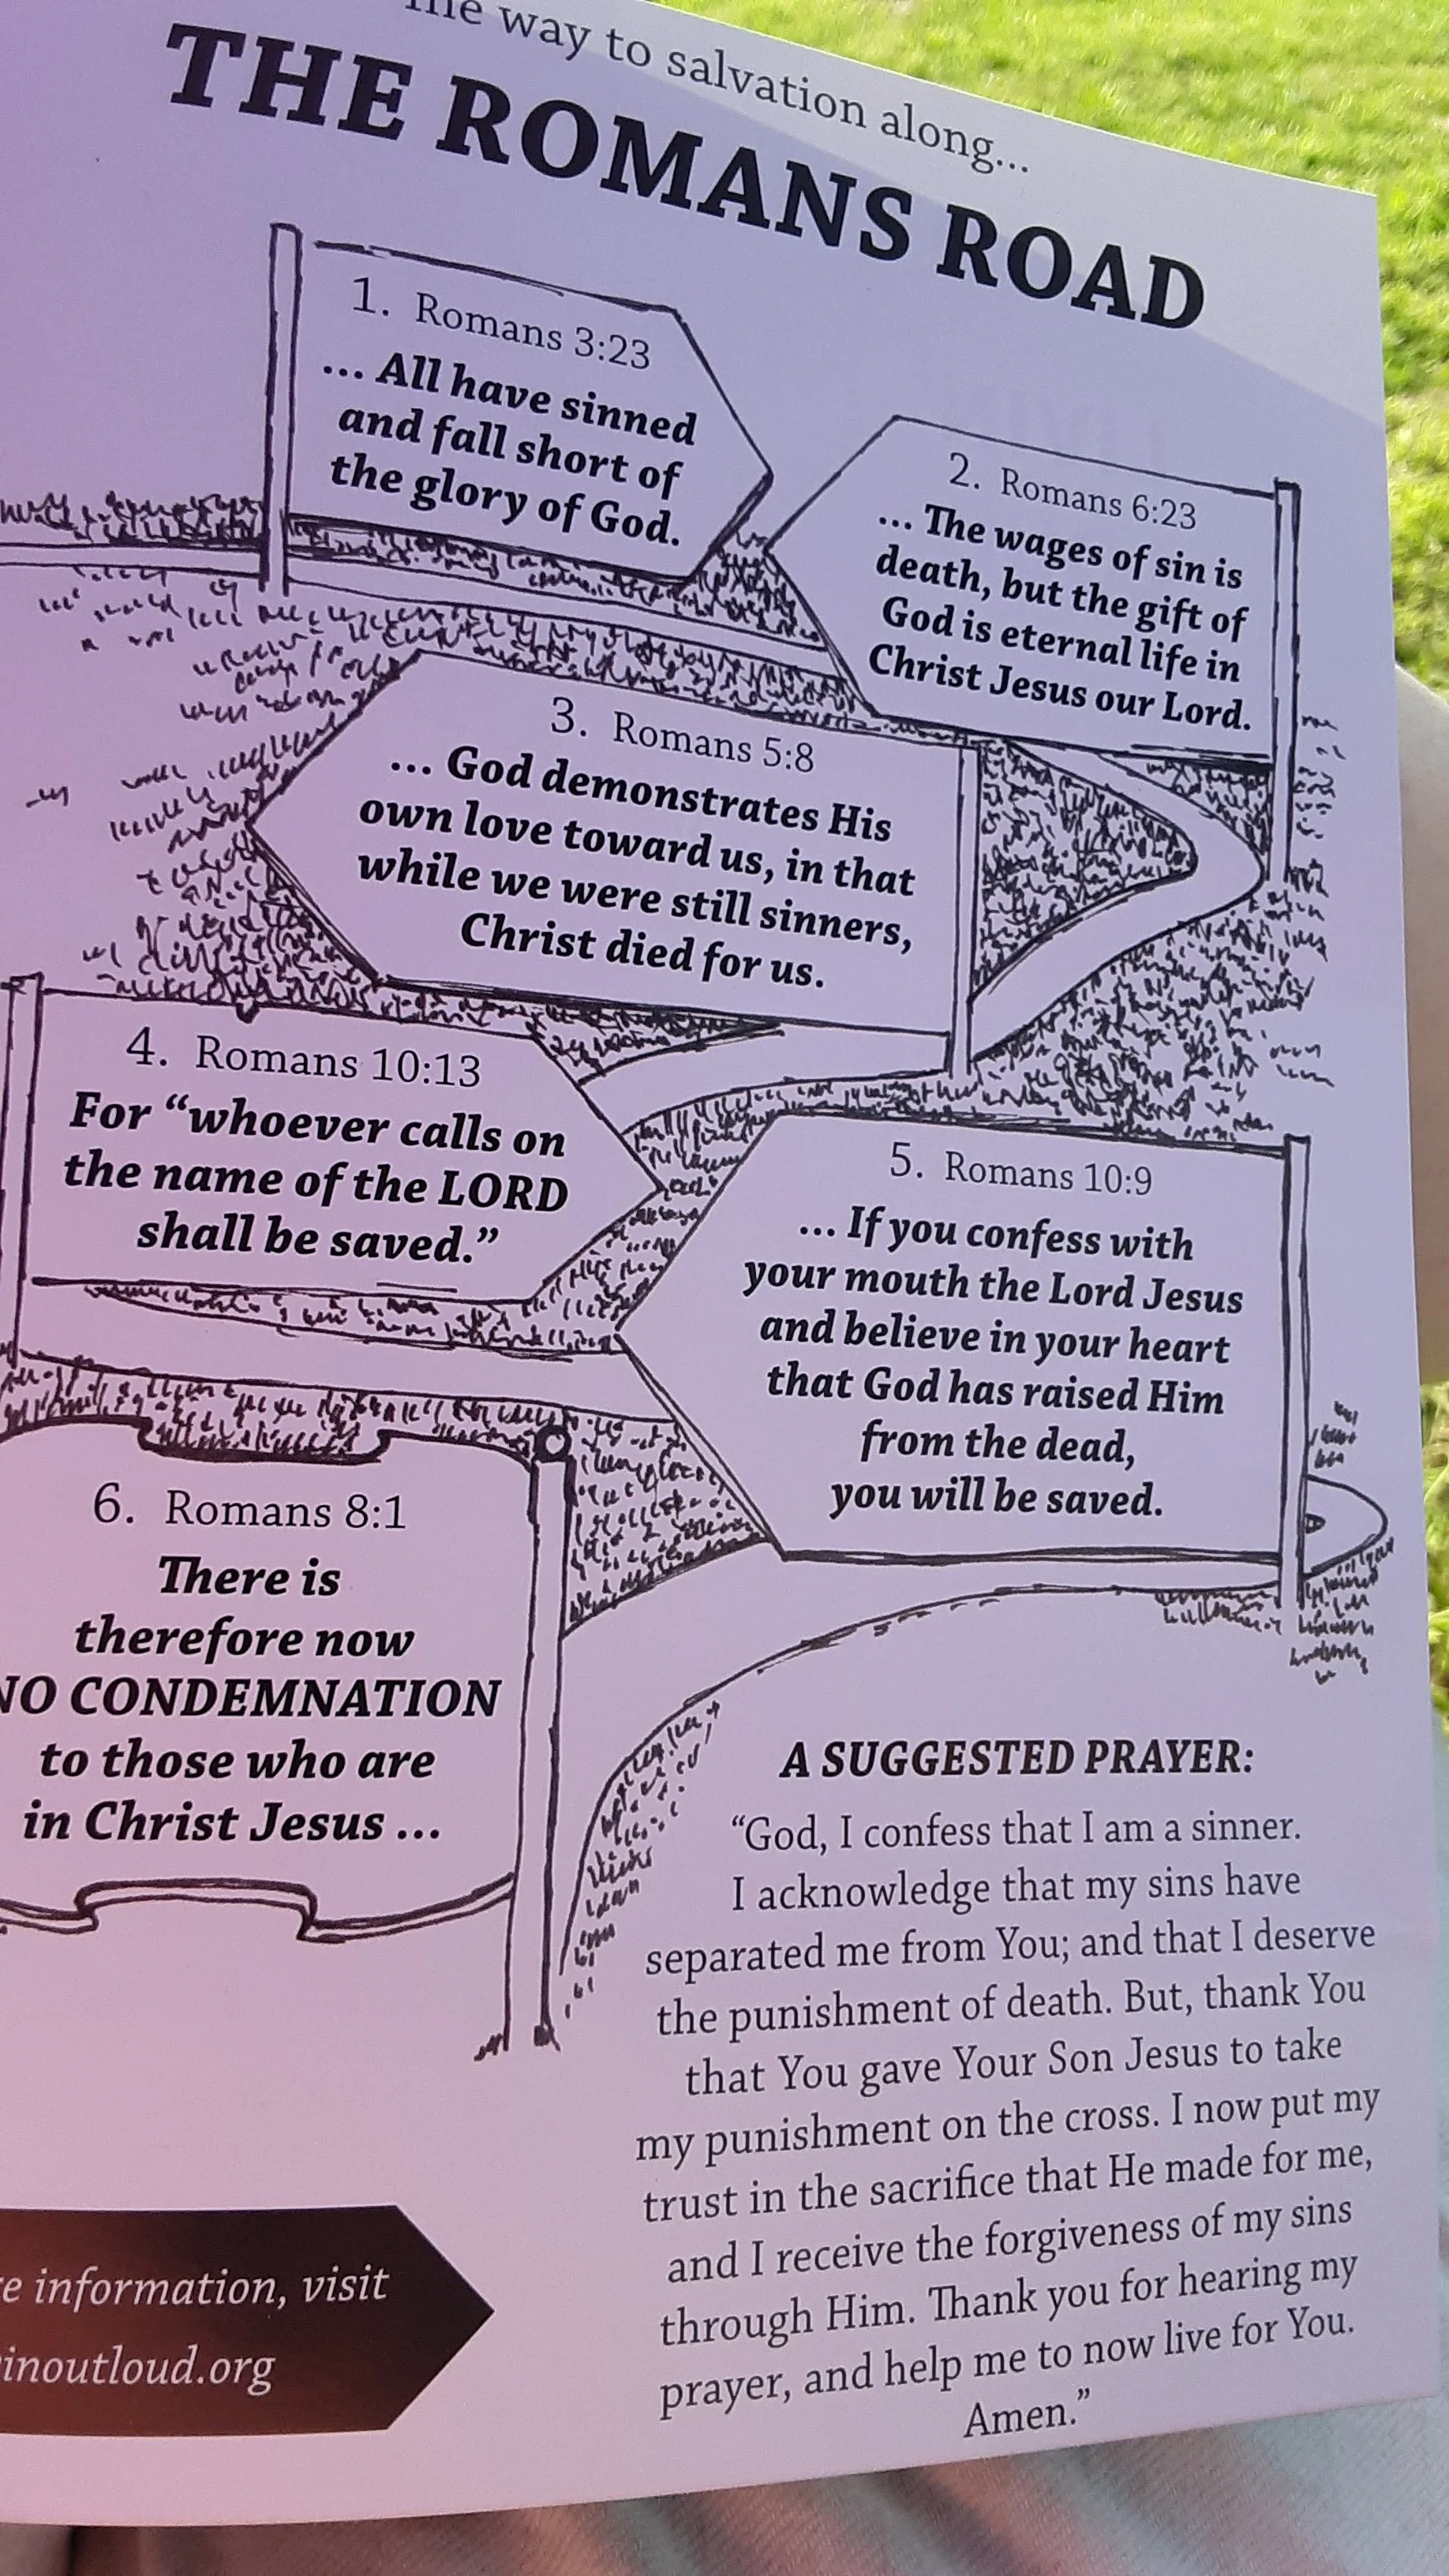 The way to salvation along...
THE ROMANS ROAD
1. Romans 3:23
... All have sinned
and fall short of
the glory of God.
2. Romans 6:23
... The wages of sin is
death, but the gift of
God is eternal life in
Christ Jesus our Lord.
3. Romans 5:8
... God demonstrates His
own love toward us, in that
while we were still sinners,
Christ died for us.
4. Romans 10:13
For “whoever calls on
the name of the LORD
shall be saved.”
5. Romans 10:9
... If you confess with
your mouth the Lord Jesus
and believe in your heart
that God has raised Him
from the dead,
you will be saved.
6. Romans 8:1
There is
therefore now
NO CONDEMNATION
to those who are
in Christ Jesus ...
A SUGGESTED PRAYER:
“God, I confess that I am a sinner.
I acknowledge that my sins have
separated me from You; and that I deserve
the punishment of death. But, thank You
that You gave Your Son Jesus to take
my punishment on the cross. I now put my
trust in the sacrifice that He made for me,
and I receive the forgiveness of my sins
through Him. Thank you for hearing my
prayer, and help me to now live for You.
Amen.”
information, visit
inoutloud.org